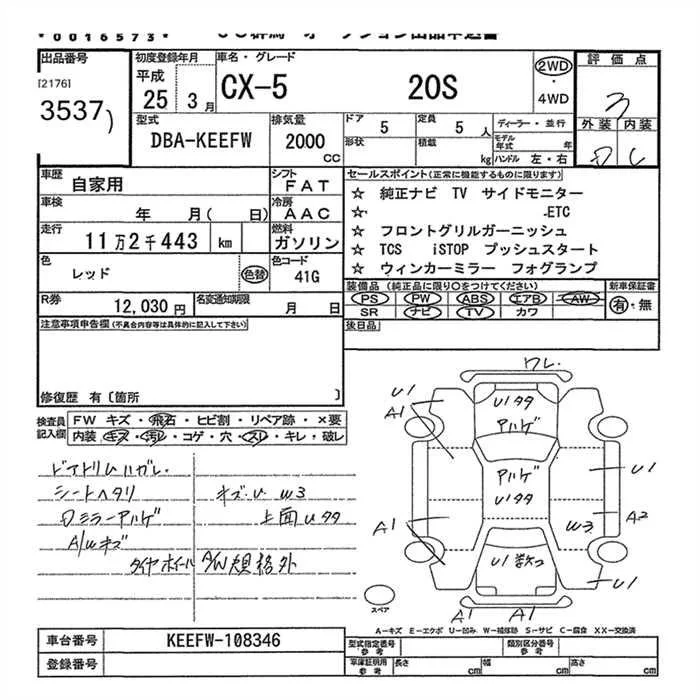 *0016573*
出品番号
[2176]
3537)
初度登録年月
平成
25 3月
車名・グレード
CX-5 20S
2WD
・
4WD
評価点
3
外装 内装
型式
DBA-KEEFW
排気量
2000
CC
ドア 5
定員 5人
形状
積載 kg
ディーラー・並行
モデル年式 年
ハンドル 左・右
車歴
自家用
シフト
FAT
車検 年 月( 日)
冷房
AAC
走行
11万2千443 km
燃料
ガソリン
色
レッド
色替
色コード
41G
R券
12,030円
名変通知期限
月 日
セールスポイント(正常に機能するものに限ります)
☆ 純正ナビ TV サイドモニター
☆ .ETC
☆ フロントグリルガーニッシュ
☆ TCS iSTOP プッシュスタート
☆ ウィンカーミラー フォグランプ
装備品 (純正品に限り○をつけてください)
PS PW ABS エアB AW
SR ナビ TV カワ
新車保証書
有・無
後日品
注意事項申告欄(不具合内容等は具体的に記入して下さい)
修復歴 有〔箇所 〕
検査員
記入欄
FW キズ・飛石・ヒビ割・リペア跡・×要
内装・キズ・汚レ・コゲ・穴・スレ・キレ・破レ
ドアトリムハガレ.
シートヘタリ キズ・U W3
ロミラーアハゲ 上面Uタタ
A/Wキズ
タイヤホイール A/W規格外
ワレ.
U1
A1
U1タタ
アハゲ
アハゲ
U1タタ
U1
A2
W3
A1
U1数コ
U1
A1 A1
スペア
A-キズ E-エクボ U-凹み W-補修跡 S-サビ C-腐食 XX-交換済
車台番号 KEEFW-108346
登録番号
型式指定番号
参考
類別区分番号
参考
車庫証明用
参考
長さ cm
幅 cm
高さ cm